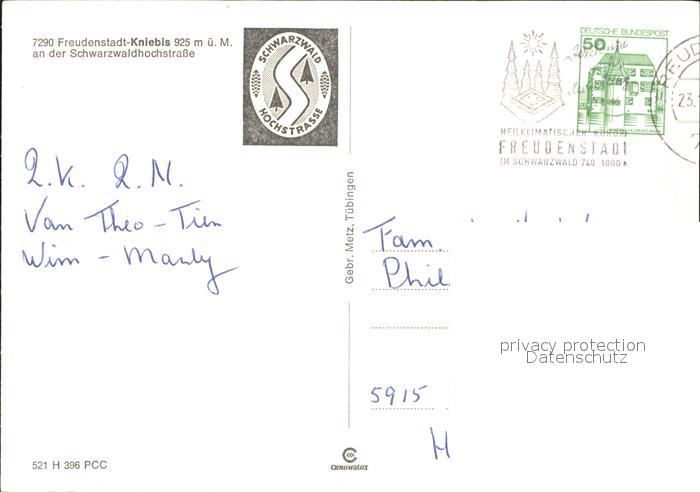 7290 Freudenstadt-Kniebis 925 m ü. M.
an der Schwarzwaldhochstraße
SCHWARZWALD
HOCHSTRASSE
DEUTSCHE BUNDESPOST
50
HEILKLIMATISCHER KURORT
FREUDENSTADT
IM SCHWARZWALD 740 - 1000 m
FREUD
23.
7
L.K. L.M.
Van Theo-Tien
Wim - Manly
Gebr. Metz, Tübingen
Fam.
Phil
privacy protection
Datenschutz
5915
H
521 H 396 PCC
CHROMOLUX